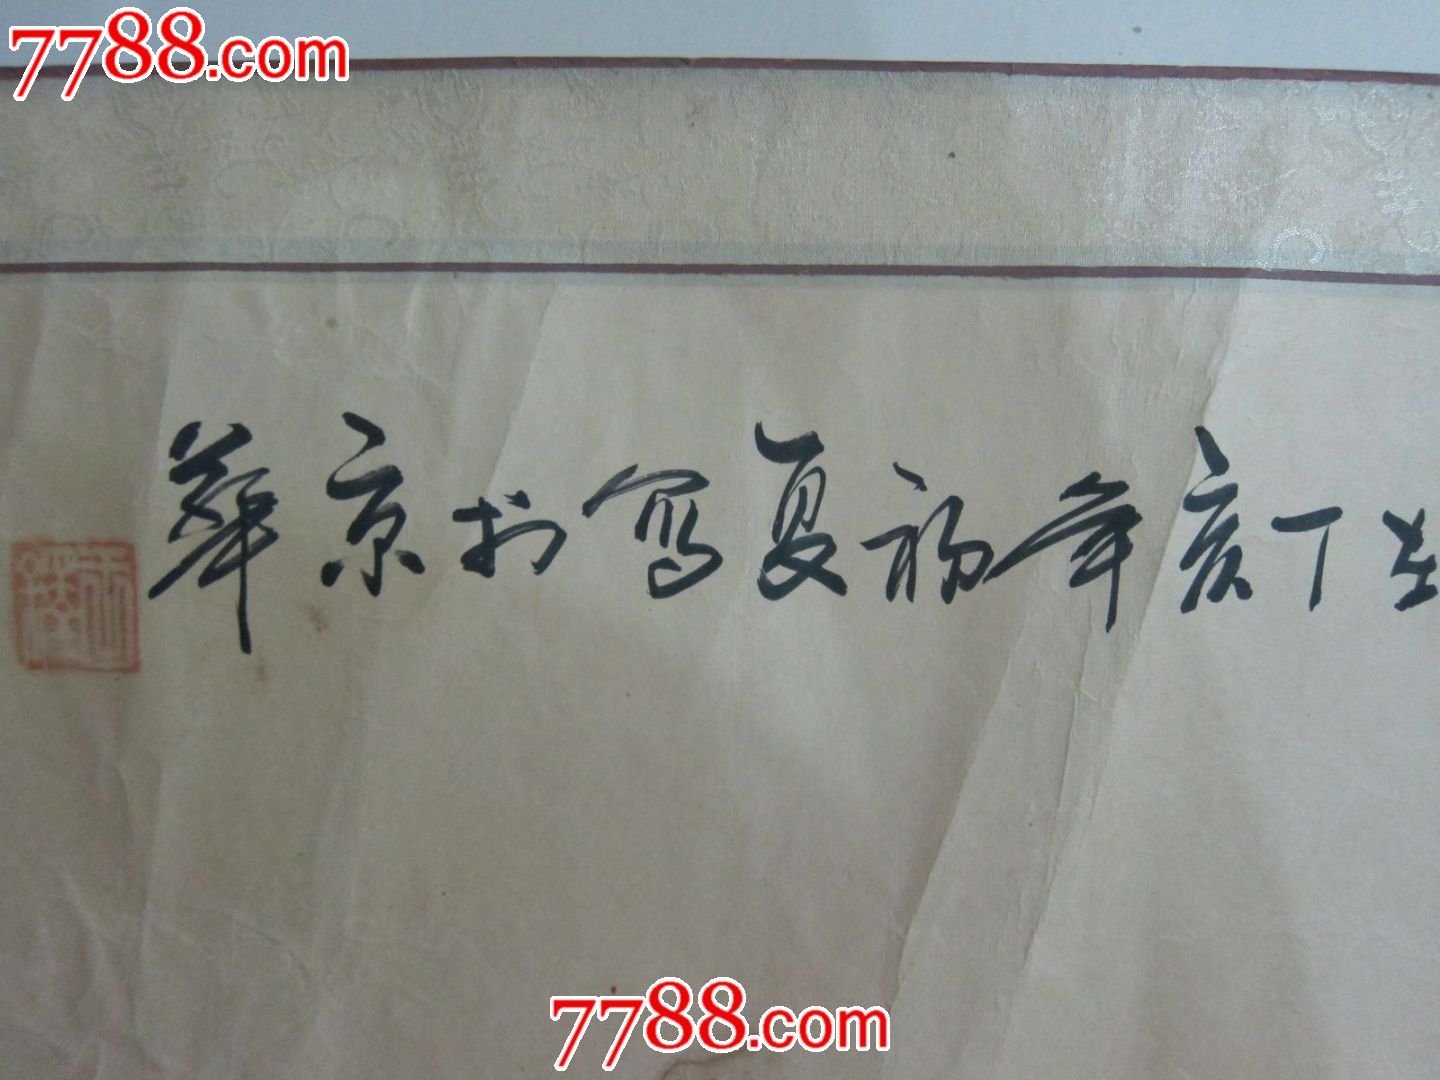 7788.com
在丁亥年初夏寫於京華
7788.com